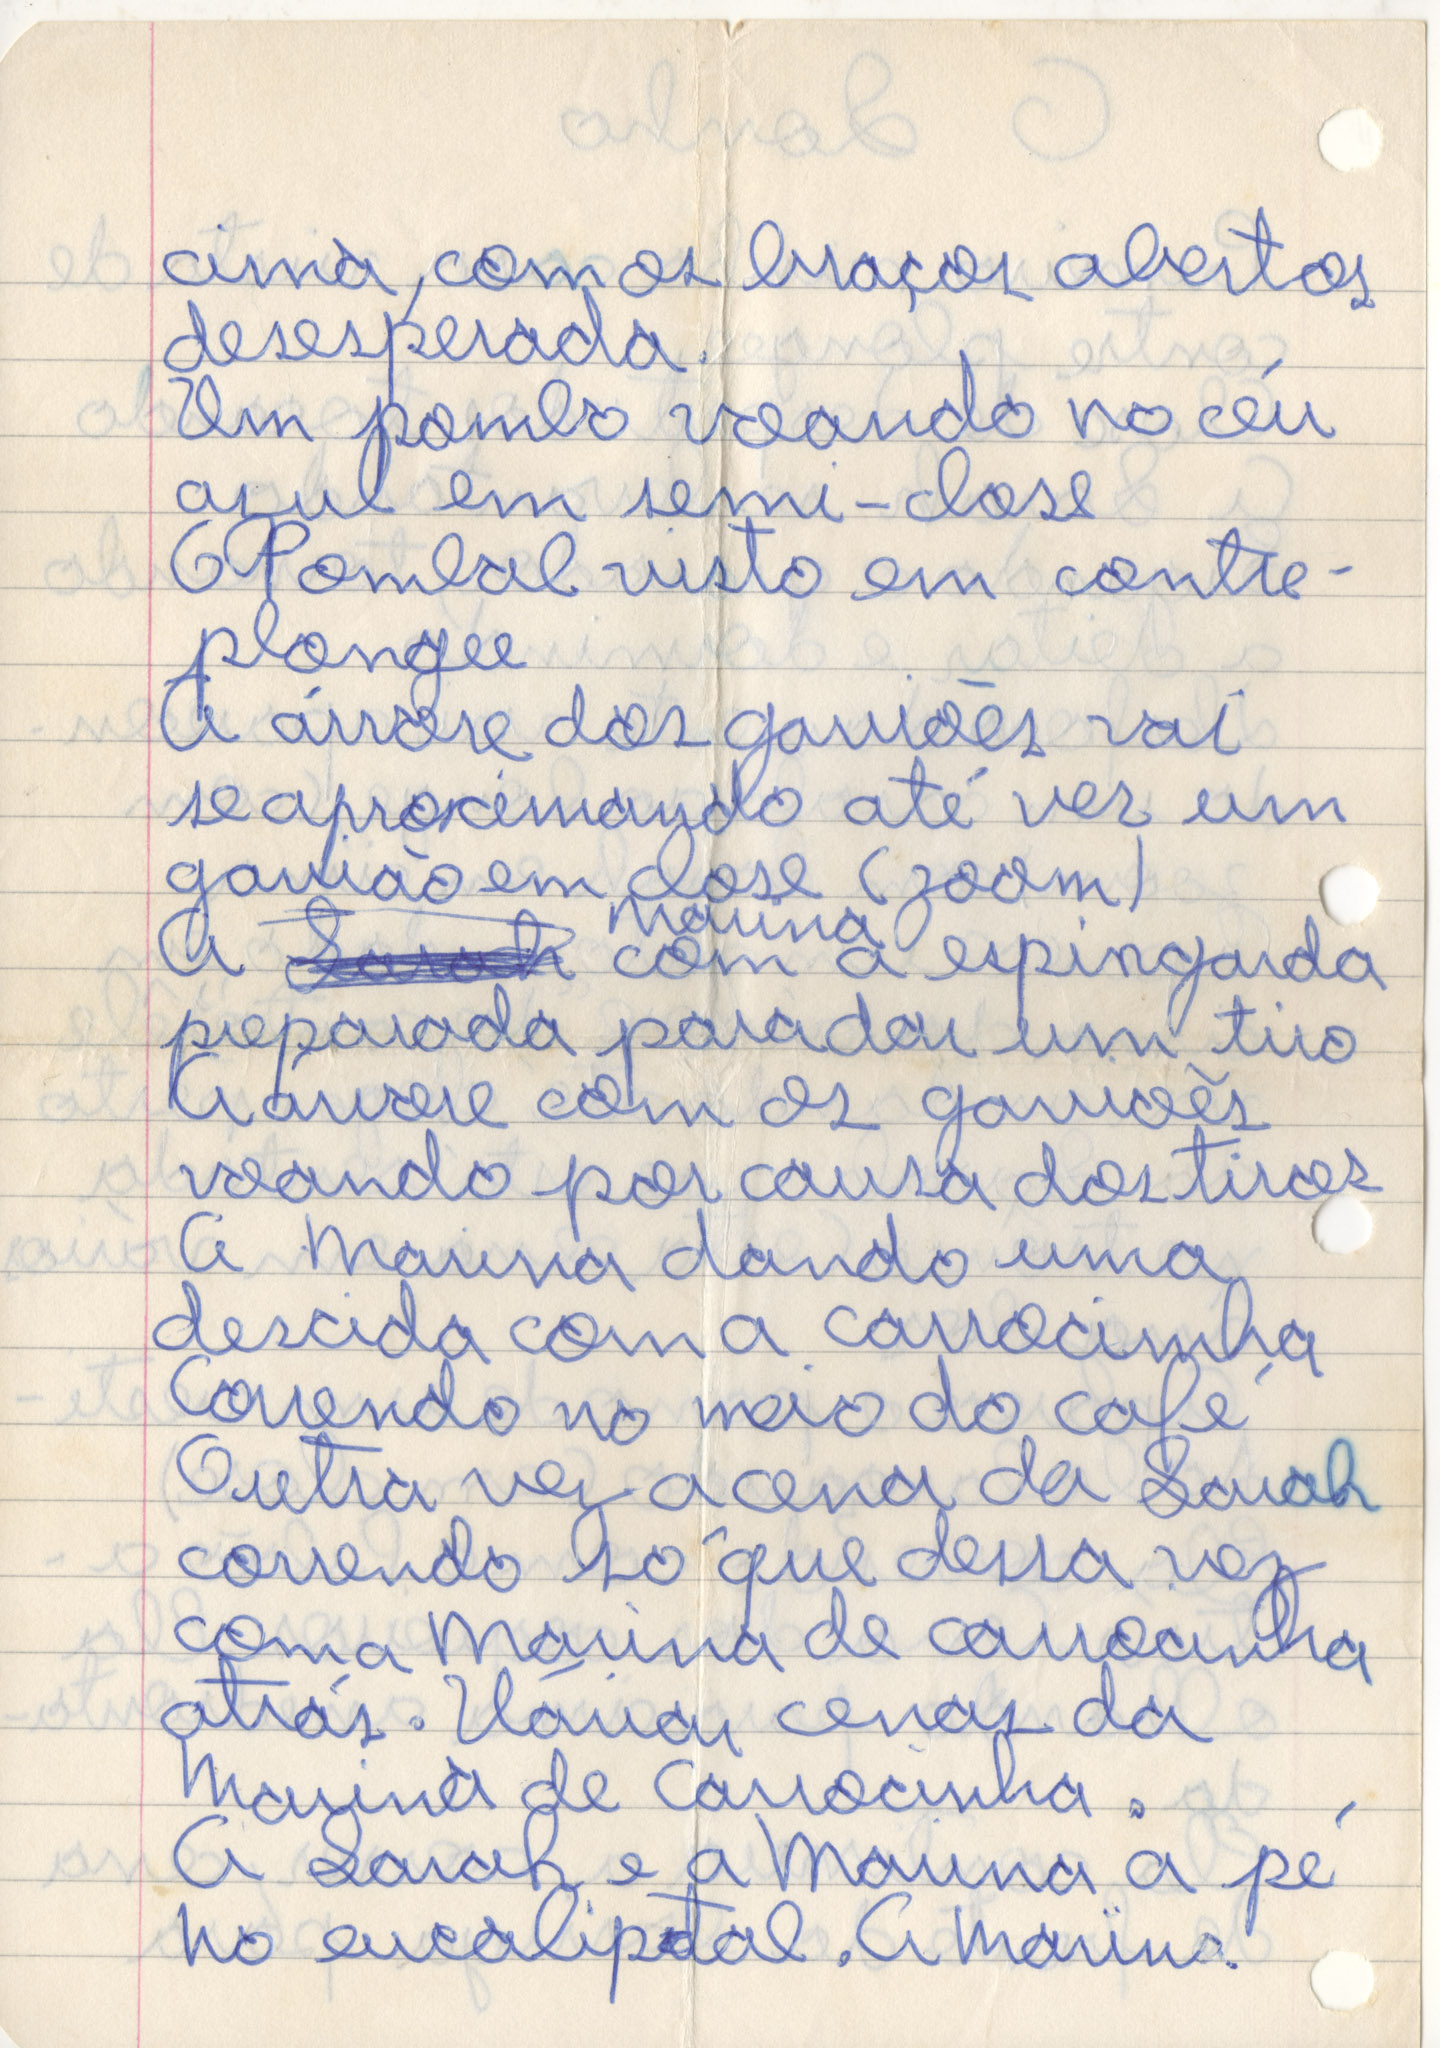 cima, com os braços abertos
desesperada.
Um pombo voando no céu
azul em semi-close
O Pombal visto em contre-
plongee
A árvore dos gaviões vai
se aproximando até ver um
gavião em close (zoom)
A Sarah Marina com a espingarda
preparada para dar um tiro
A árvore com os gaviões
voando por causa dos tiros
A Marina dando uma
descida com a carrocinha
Correndo no meio do café
Outra vez a cena da Sarah
correndo só que dessa vez
com a Marina de carrocinha
atrás. Várias cenas da
Marina de carrocinha.
A Sarah e a Marina a pé
no eucaliptal. A Marina